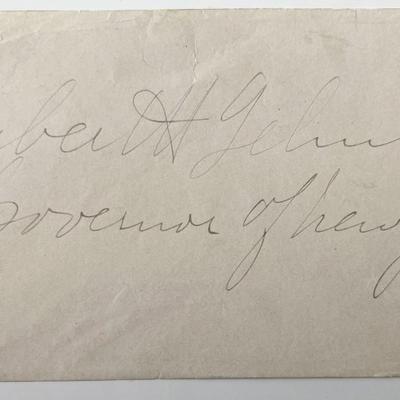 bert H Gehn
Governor of New